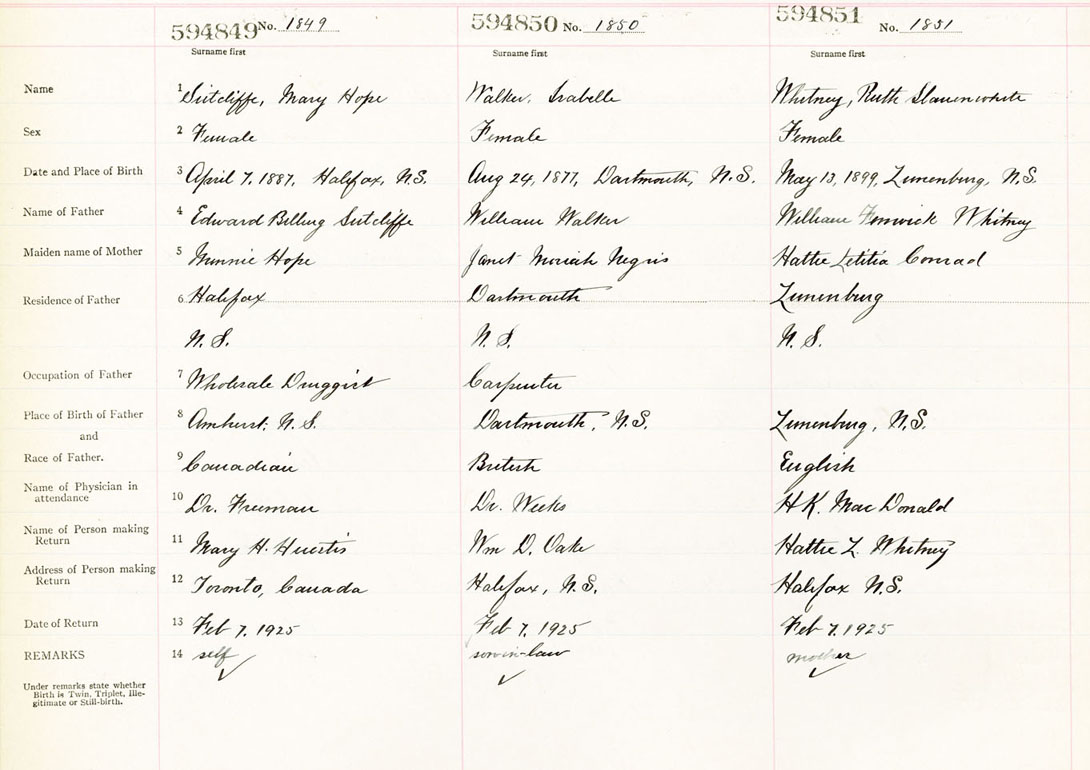 594849 No. 1849 594850 No. 1850 594851 No. 1851
Surname first Surname first Surname first
Name 1 Sutcliffe, Mary Hope Walker, Isabelle Whitney, Ruth Slauenwhite
Sex 2 Female Female Female
Date and Place of Birth 3 April 7, 1887, Halifax, N.S. Aug 24, 1877, Dartmouth, N.S. May 13, 1899, Lunenburg, N.S.
Name of Father 4 Edward Billing Sutcliffe William Walker William Fenwick Whitney
Maiden name of Mother 5 Minnie Hope Janet Moriah Negris Hattie Letitia Conrad
Residence of Father 6 Halifax Dartmouth Lunenburg
N.S. N.S. N.S.
Occupation of Father 7 Wholesale Druggist Carpenter
Place of Birth of Father 8 Amherst, N.S. Dartmouth, N.S. Lunenburg, N.S.
and
Race of Father. 9 Canadian British English
Name of Physician in
attendance 10 Dr. Freeman Dr. Weeks H.K. MacDonald
Name of Person making
Return 11 Mary H. Huestis Wm D. Oake Hattie L. Whitney
Address of Person making
Return 12 Toronto, Canada Halifax, N.S. Halifax N.S.
Date of Return 13 Feb 7, 1925 Feb 7, 1925 Feb 7, 1925
REMARKS 14 self son-in-law mother
Under remarks state whether
Birth is Twin, Triplet, Ille-
gitimate or Still-birth.